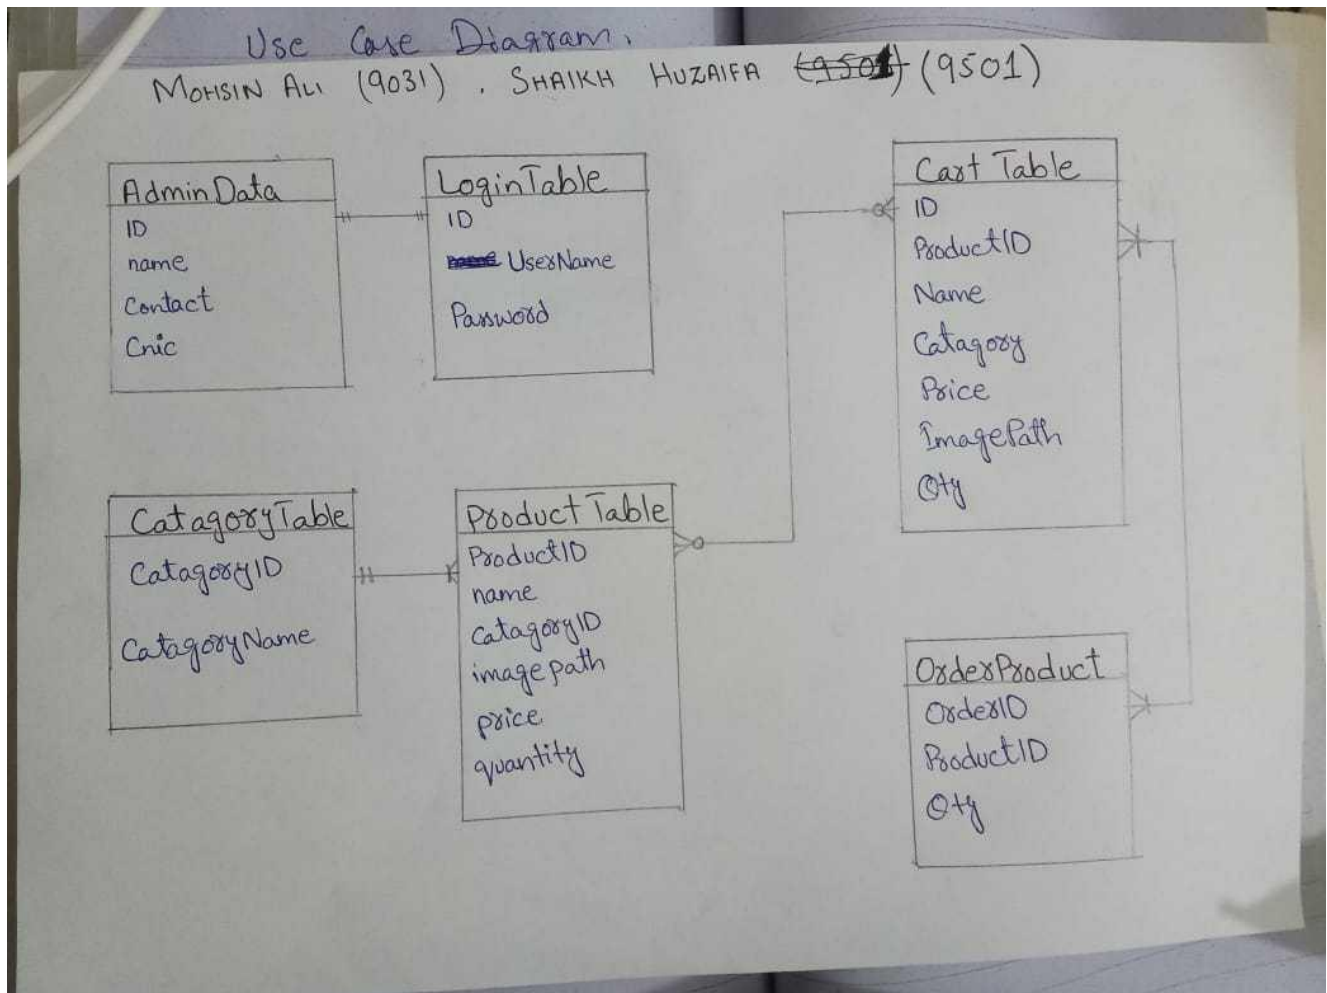 Use Case Diagram.
MOHSIN ALI (9031) . SHAIKH HUZAIFA (9501) (9501)
AdminData
ID
name
Contact
Cnic
LoginTable
ID
name UserName
Password
Cart Table
ID
ProductID
Name
Catagory
Price
ImagePath
Qty
CatagoryTable
CatagoryID
CatagoryName
Product Table
ProductID
name
CatagoryID
image path
price
quantity
OrderProduct
OrderID
ProductID
Qty